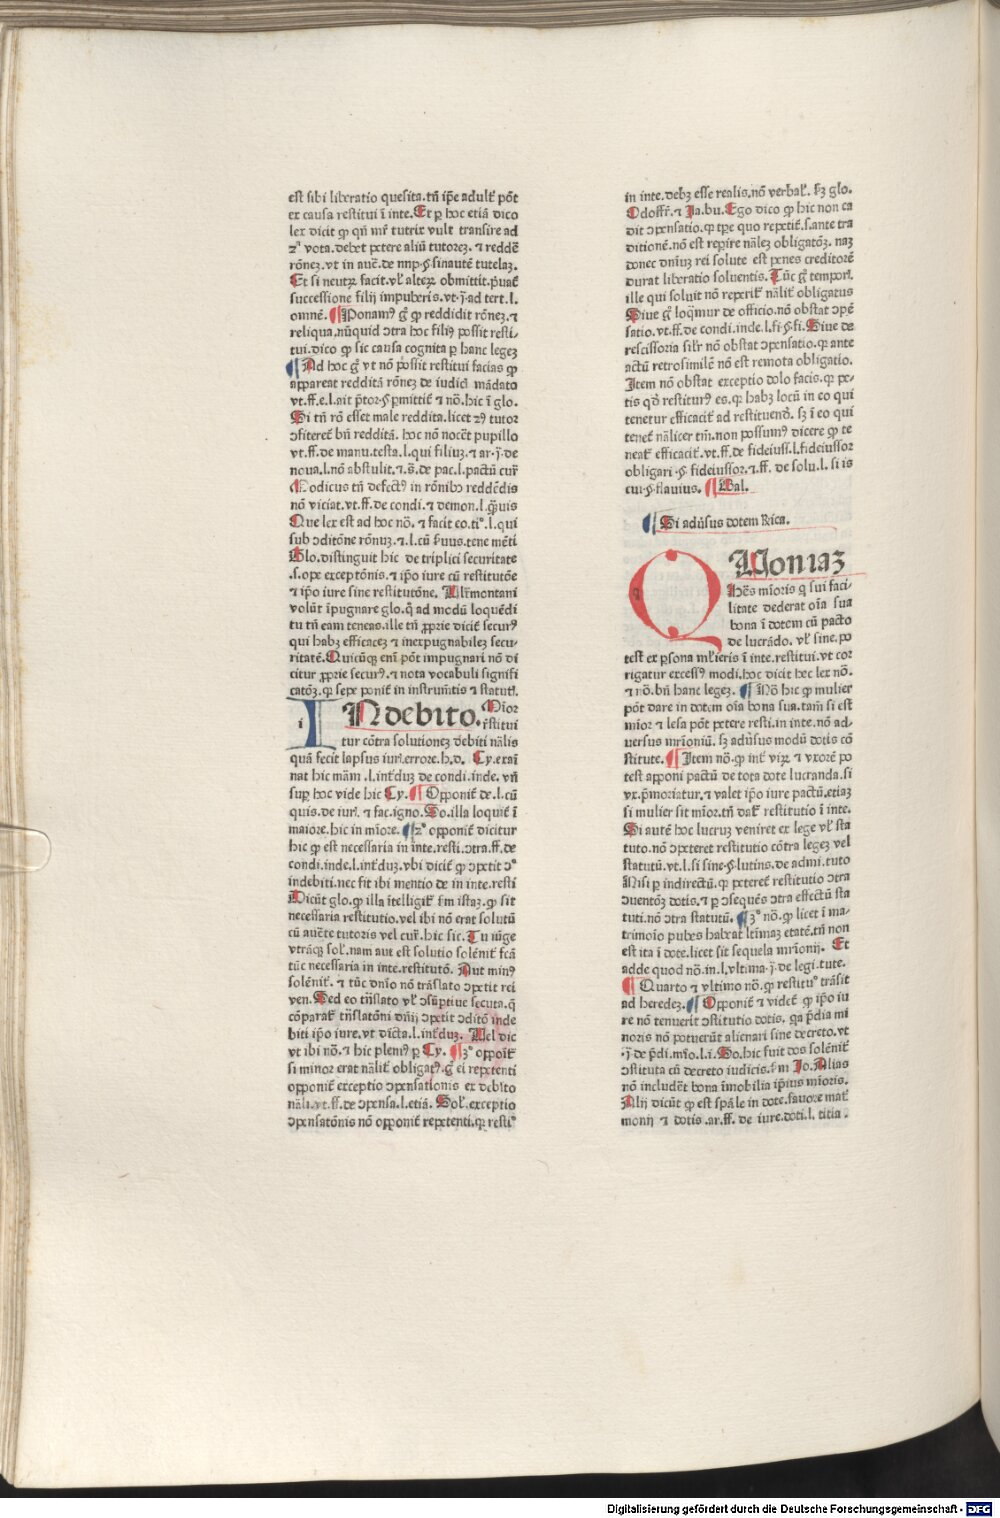 est sibi liberatio quesita. tñ ip̄e adult᷑ pōt
ex causa restitui ī inte. Et ꝑ hoc etiā dico
lex dicit ꝙ qñ mr̄ tutrix vult transire ad
2ᵃ vota. debet petere aliū tutorez. ⁊ reddē
rōnez. vt in auc̄. de nnp. §. sinautē tutelaz.
Et si neutꝝ facit. vl̓ alteꝝ obmittit. p̄uat᷑
successione filij impuberis. vt. j̄. ad tert. l.
omnē. ¶ Ponamꝰ g̊ ꝙ reddidit rōnez. ⁊
reliqua. nūquid ↄtra hoc filiꝰ possit resti⸗
tui. dico ꝙ sic causa cognita ꝑ hanc legez
¶ Ad hoc g̊ vt nō possit restitui facias ꝙ
appareat redditā rōnez de iudicꝭ mādato
vt. ff. e. l. ait p̄tor. §. ꝑmittit᷑ ⁊ nō. hic ī glo.
Si tñ rō esset male reddita. licet 2ꝰ tutor
ↄfiteret᷑ bñ redditā. hoc nō nocet pupillo
vt. ff. de manu. testa. l. qui filiuz. ⁊ ar. j̄. de
noua. l. nō abstulit. ⁊. s̄. de pac. l. pactū cur̄
Modicus tñ defectꝰ in rōnibꝫ reddēdis
nō viciat. vt. ff. de condi. ⁊ demon. l. q̄uis
Que lex est ad hoc nō. ⁊ facit eo. tiᵒ. l. qui
sub ↄditōne rōnuz. ⁊. l. cū s̓uus. tene mēti
Glo. distinguit hic de triplici securitate
.s. ope exceptōnis. ⁊ ip̄o iure cū restitutōe
⁊ ip̄o iure sine restitutōne. Vlr̄montani
volūt īpugnare glo. q̄ ad modū loquēdi
tu tñ eam teneas. ille tñ ꝓprie dicit᷑ securꝰ
qui habꝫ efficacez ⁊ inexpugnabilez secu⸗
ritatē. Quicūqꝫ enī pōt impugnari nō di
citur ꝓprie securꝰ. ⁊ nota vocabuli signifi
catōz. ꝙ sepe ponit᷑ in instrum̄tis ⁊ statutꝭ.
i INdebito. Minor
r̄stitui
tur cōtra solutionez debiti nālis
quā fecit lapsus iurꝭ. errore. h. d. Cy. exaī
nat hic mām .l. int᷑duz de condi. inde. vñ
suꝑ hoc vide hic Cy. ¶ Opponit᷑ de. l. cū
quis. de iurꝭ. ⁊ fac. igno. So. illa loquit᷑ ī
maiore. hic in mīore. ¶ 2ᵒ opponit᷑ dicitur
hic ꝙ est necessaria in inte. resti. ↄtra. ff. de
condi. inde. l. int᷑duz. vbi dicit᷑ ꝙ ↄpetit ↄᵒ
indebiti. nec fit ibi mentio de in inte. resti
Dicūt glo. ꝙ illa itelligit᷑ s̓m istaz. ꝙ sit
necessaria restitutio. vel ibi nō erat solutū
cū aucte tutoris vel cur̄. hic sic. Tu iūge
vtrāqꝫ sol̓. nam aut est solutio solēnit᷑ fcā
tūc necessaria in inte. restitutō. Aut minꝰ
solēnit᷑. ⁊ tūc dnīo nō trāslato ↄpetit rei
ven. Sed eo trāslato vl̓ ↄsūptiue secuta. q̄
cōparat᷑ trāslatōni dnīj ↄpetit ↄditō inde
biti ip̄o iure. vt dīcta. l. int᷑duz. Vel dic
vt ibi nō. ⁊ hic pleniꝰ ꝑ Cy. ¶ 3ᵒ oppoīt᷑
si minor erat nālit᷑ obligatꝰ. g̊ ei repetenti
opponit᷑ exceptio ↄpensationis ex debito
nāli. vt. ff. de ↄpensa. l. etiā. Sol̓. exceptio
ↄpensatōnis nō opponit᷑ repetenti. qꝛ restiᵒ
in inte. debꝫ esse realis. nō verbal̓. s̓ꝫ glo.
Odoffr̄. ⁊ Ja. bu. Ego dico ꝙ hic non ca
dit ↄpensatio. ꝙ tpe quo repetit᷑. s. ante tra
ditionē. nō est repire nālez obligatōz. naz
donec dnīuz rei solute est penes creditorē
durat liberatio soluentis. Tūc g̊ temporꝭ.
ille qui soluit nō reperit᷑ nālit᷑ obligatus
Siue g̊ loq̄mur de officio. nō obstat ↄpē
satio. vt. ff. de condi. inde. l. fi. §. fi. Siue de
rescissoria silr̄ nō obstat ↄpensatio. ꝙ ante
actū retrosimilē nō est remota obligatio.
Item nō obstat exceptio dolo facis. ꝙ pe⸗
tis qd̓ restiturꝰ es. ꝙ habꝫ locū in eo qui
tenetur efficacit᷑ ad restituendꝭ. sꝫ ī eo qui
tenet᷑ nālicer tm̄. non possumꝰ dicere ꝙ te
neat᷑ efficacit᷑. vt. ff. de fideiuss. l. fideiussor
obligari. §. fideiussor. ⁊. ff. de solu. l. si is
cui. §. flauius. ¶ Bal.
¶ Si adūsus dotem Rica.
QUoniaz
hēs mīoris q̄ sui faci⸗
litate dederat oīa sua
bona ī dotem cū pacto
de lucrādo. vl̓ sine. po
test ex ꝑsona ml̓ieris ī inte. restitui. vt cor
rigatur excessꝰ modi. hoc dicit hec lex nō.
⁊ nō. bñ hanc legez. ¶ Nō hic ꝙ mulier
pōt dare in dotem oīa bona sua. tam̄ si est
mīor ⁊ lesa pōt petere resti. in inte. nō ad⸗
versus mr̄ioniū. sꝫ adūsus modū dotis cō
stitute. ¶ Item nō. ꝙ int᷑ viꝝ ⁊ vxorē po
test apponi pactū de tota dote lucranda. si
vx. p̄moriatur. ⁊ valet ip̄o iure pactū. etiaz
si mulier sit mīor. tñ dat᷑ restitutio ī inte.
Si autē hoc lucruz veniret ex lege vl̓ sta
tuto. nō ↄpeteret restitutio cōtra legez vel
statutū. vt. l. si sine. §. lutins. de admi. tuto
Nisi ꝑ indirectū. ꝙ peteret᷑ restitutio ↄtra
ↄuentōz dotis. ⁊ ꝑ ↄsequēs ↄtra effectū sta
tuti. nō ↄtra statutū. ¶ 3ᵒ nō. ꝙ licet ī ma⸗
trimoīo pubes habeat l̓timaz etatē. tñ non
est ita ī dote. licet sit sequela mr̄ionij. Et
adde quod nō. in. l. vltima. j̄. de legi. tute.
¶ Quarto ⁊ vltimo nō. ꝙ restituᵒ trāsit
ad heredez. ¶ Opponit᷑ ⁊ videt᷑ ꝙ ip̄o iu
re nō tenuerit ↄstitutio dotis. qꝛ p̄dia mi
noris nō potuerūt alienari sine decreto. vt
. j̄. de p̄di. mīo. l. ī. So. hic fuit dos solēnit᷑
ↄstituta cū decreto iudicis. s̓m Jo. Alias
nō includēt᷑ bona īmobilia ip̄ius mīoris.
Alij dicūt ꝙ est spāle in dote. fauore mat᷑
monij ⁊ dotis. ar. ff. de iure. doti. l. titia.
Digitalisierung gefördert durch die Deutsche Forschungsgemeinschaft - DFG